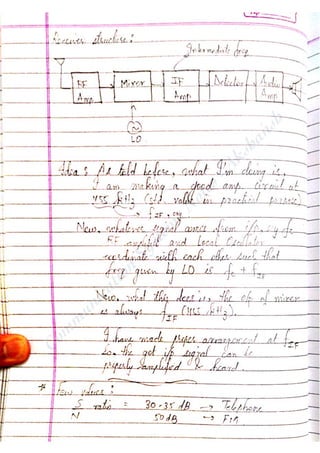 Receiver structure:
Intermediate freq
RF Amp. Mixer IF Amp Detector Audio Amp
LO
Idea: As told before, what I'm doing is,
I am making a good amp. circuit at
455 kHz (std. value in practical purpose)
→ f_IF, say
Now, whatever signal comes from i/p, say fc
RF amplifier and Local Oscillator
coordinate with each other such that
freq given by LO is fc + f_IF
Now, what this does is, the o/p of mixer
is always f_IF (455 kHz).
I have made proper arrangement at f_IF
so the get i/p signal can be
properly amplified & heard.
* Few values:
S/N ratio = 30-35 dB → Telephone
50 dB → Fm